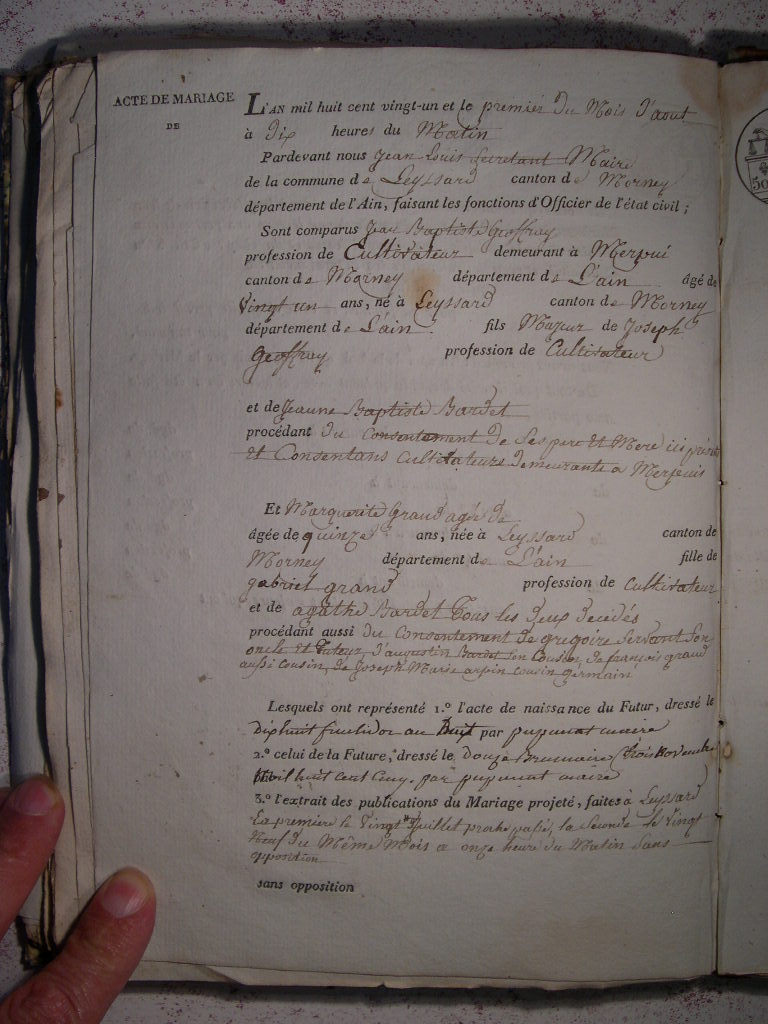 ACTE DE MARIAGE
DE
L'AN mil huit cent vingt-un et le premier Du Mois D'aout
à Dix heures du Matin
Pardevant nous Jean Louis Secretant Maire
de la commune de Leyssard canton de Morney
département de l'Ain, faisant les fonctions d'Officier de l'état civil;
Sont comparus Jean Baptiste Geoffray
profession de Cultivateur demeurant à Merpui
canton de Morney département de L'ain âgé de
Vingt un ans, né à Leyssard canton de Morney
département de L'ain. fils Majeur de Joseph
Geoffray profession de Cultivateur
et de Jeanne Baptiste Bardet
procédant du Consentement De Ses pere Et Mere ici
Et Consentans Cultivateurs Demeurants a
Et Marguerite Grand agée de
âgée de quinze ans, née à Leyssard canton de
Morney département de L'ain fille de
gabriel grand profession de Cultivateur
et de agathe Bardet Tous les Deux Decédés
procédant aussi Du Consentement De gregoire Servant Son
oncle Et Tuteur, D'augustin Bardet Son Cousin, De françois grand
aussi cousin, De Joseph Marie arpin cousin germain
Lesquels ont représenté 1.º l'acte de naissance du Futur, dressé le
Dixhuit fructidor an huit par maire
2.º celui de la Future, dressé le Douze Brumaire trois Novembre
Mil huit cent Cinq. par maire
3.º l'extrait des publications du Mariage projeté, faites à Leyssard
La premiere le Vingt Juillet proche passé, la Seconde le Vingt
Neuf Du Même Mois a onze heure Du Matin Sans
opposition
sans opposition
50